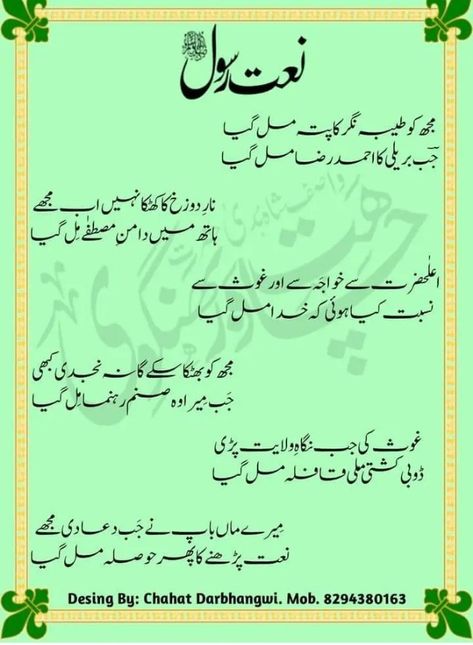 نعت رسول ﷺ
مجھ کو طیبہ نگر کا پتہ مل گیا
جب بریلی کا احمد رضا مل گیا
نارِ دوزخ کا کھٹکا نہیں اب مجھے
ہاتھ میں دامنِ مصطفٰے مِل گیا
اعلٰحضرت سے خواجہ سے اور غوث سے
نسبت کیا ہوئی کہ خدا مل گیا
مجھ کو بھٹکا سکے گا نہ نجدی کبھی
جَب مِیرا وہ صنم رہنما مِل گیا
غوث کی جب نگاہِ ولایت پڑی
ڈوبی کشتی ملی قافلہ مل گیا
مِیرے ماں باپ نے جَب دعا دی مجھے
نعت پڑھنے کا پھر حوصلہ مل گیا
Desing By: Chahat Darbhangwi. Mob. 8294380163